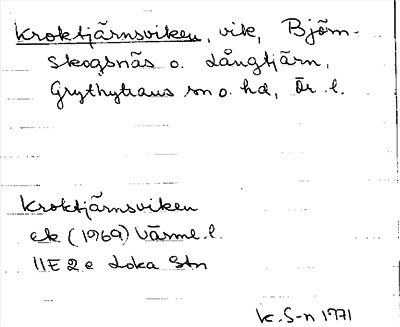 Kroktjärnsviken, vik, Björn-
skogsnäs o. Långtjärn,
Grythyttans sn o. hd, Ör. l.
Kroktjärnsviken
ek (1969) Värml. l.
11E 2 e Loka Stn
K. S-n 1971